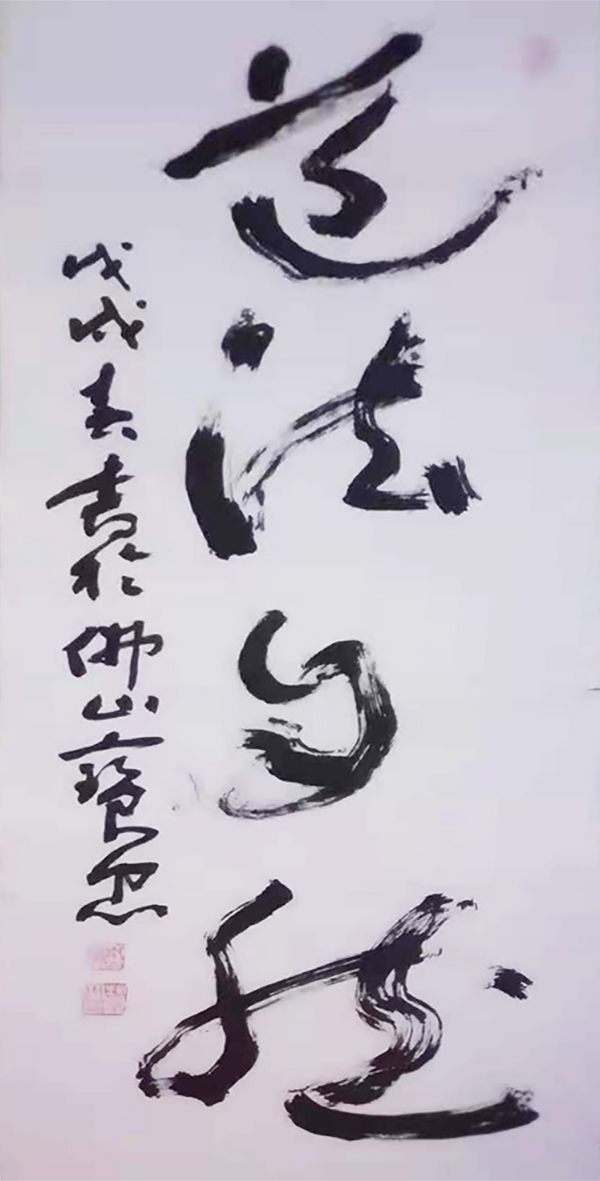 道法自然
戊戌春書於佛山寶忠